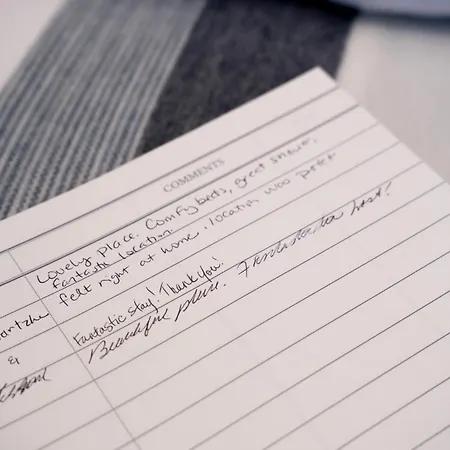 COMMENTS
Lovely place. Comfy beds, great shower,
fantastic location.
felt right at home. location was
&
Fantastic stay! Thank you!
Beautiful place. host!